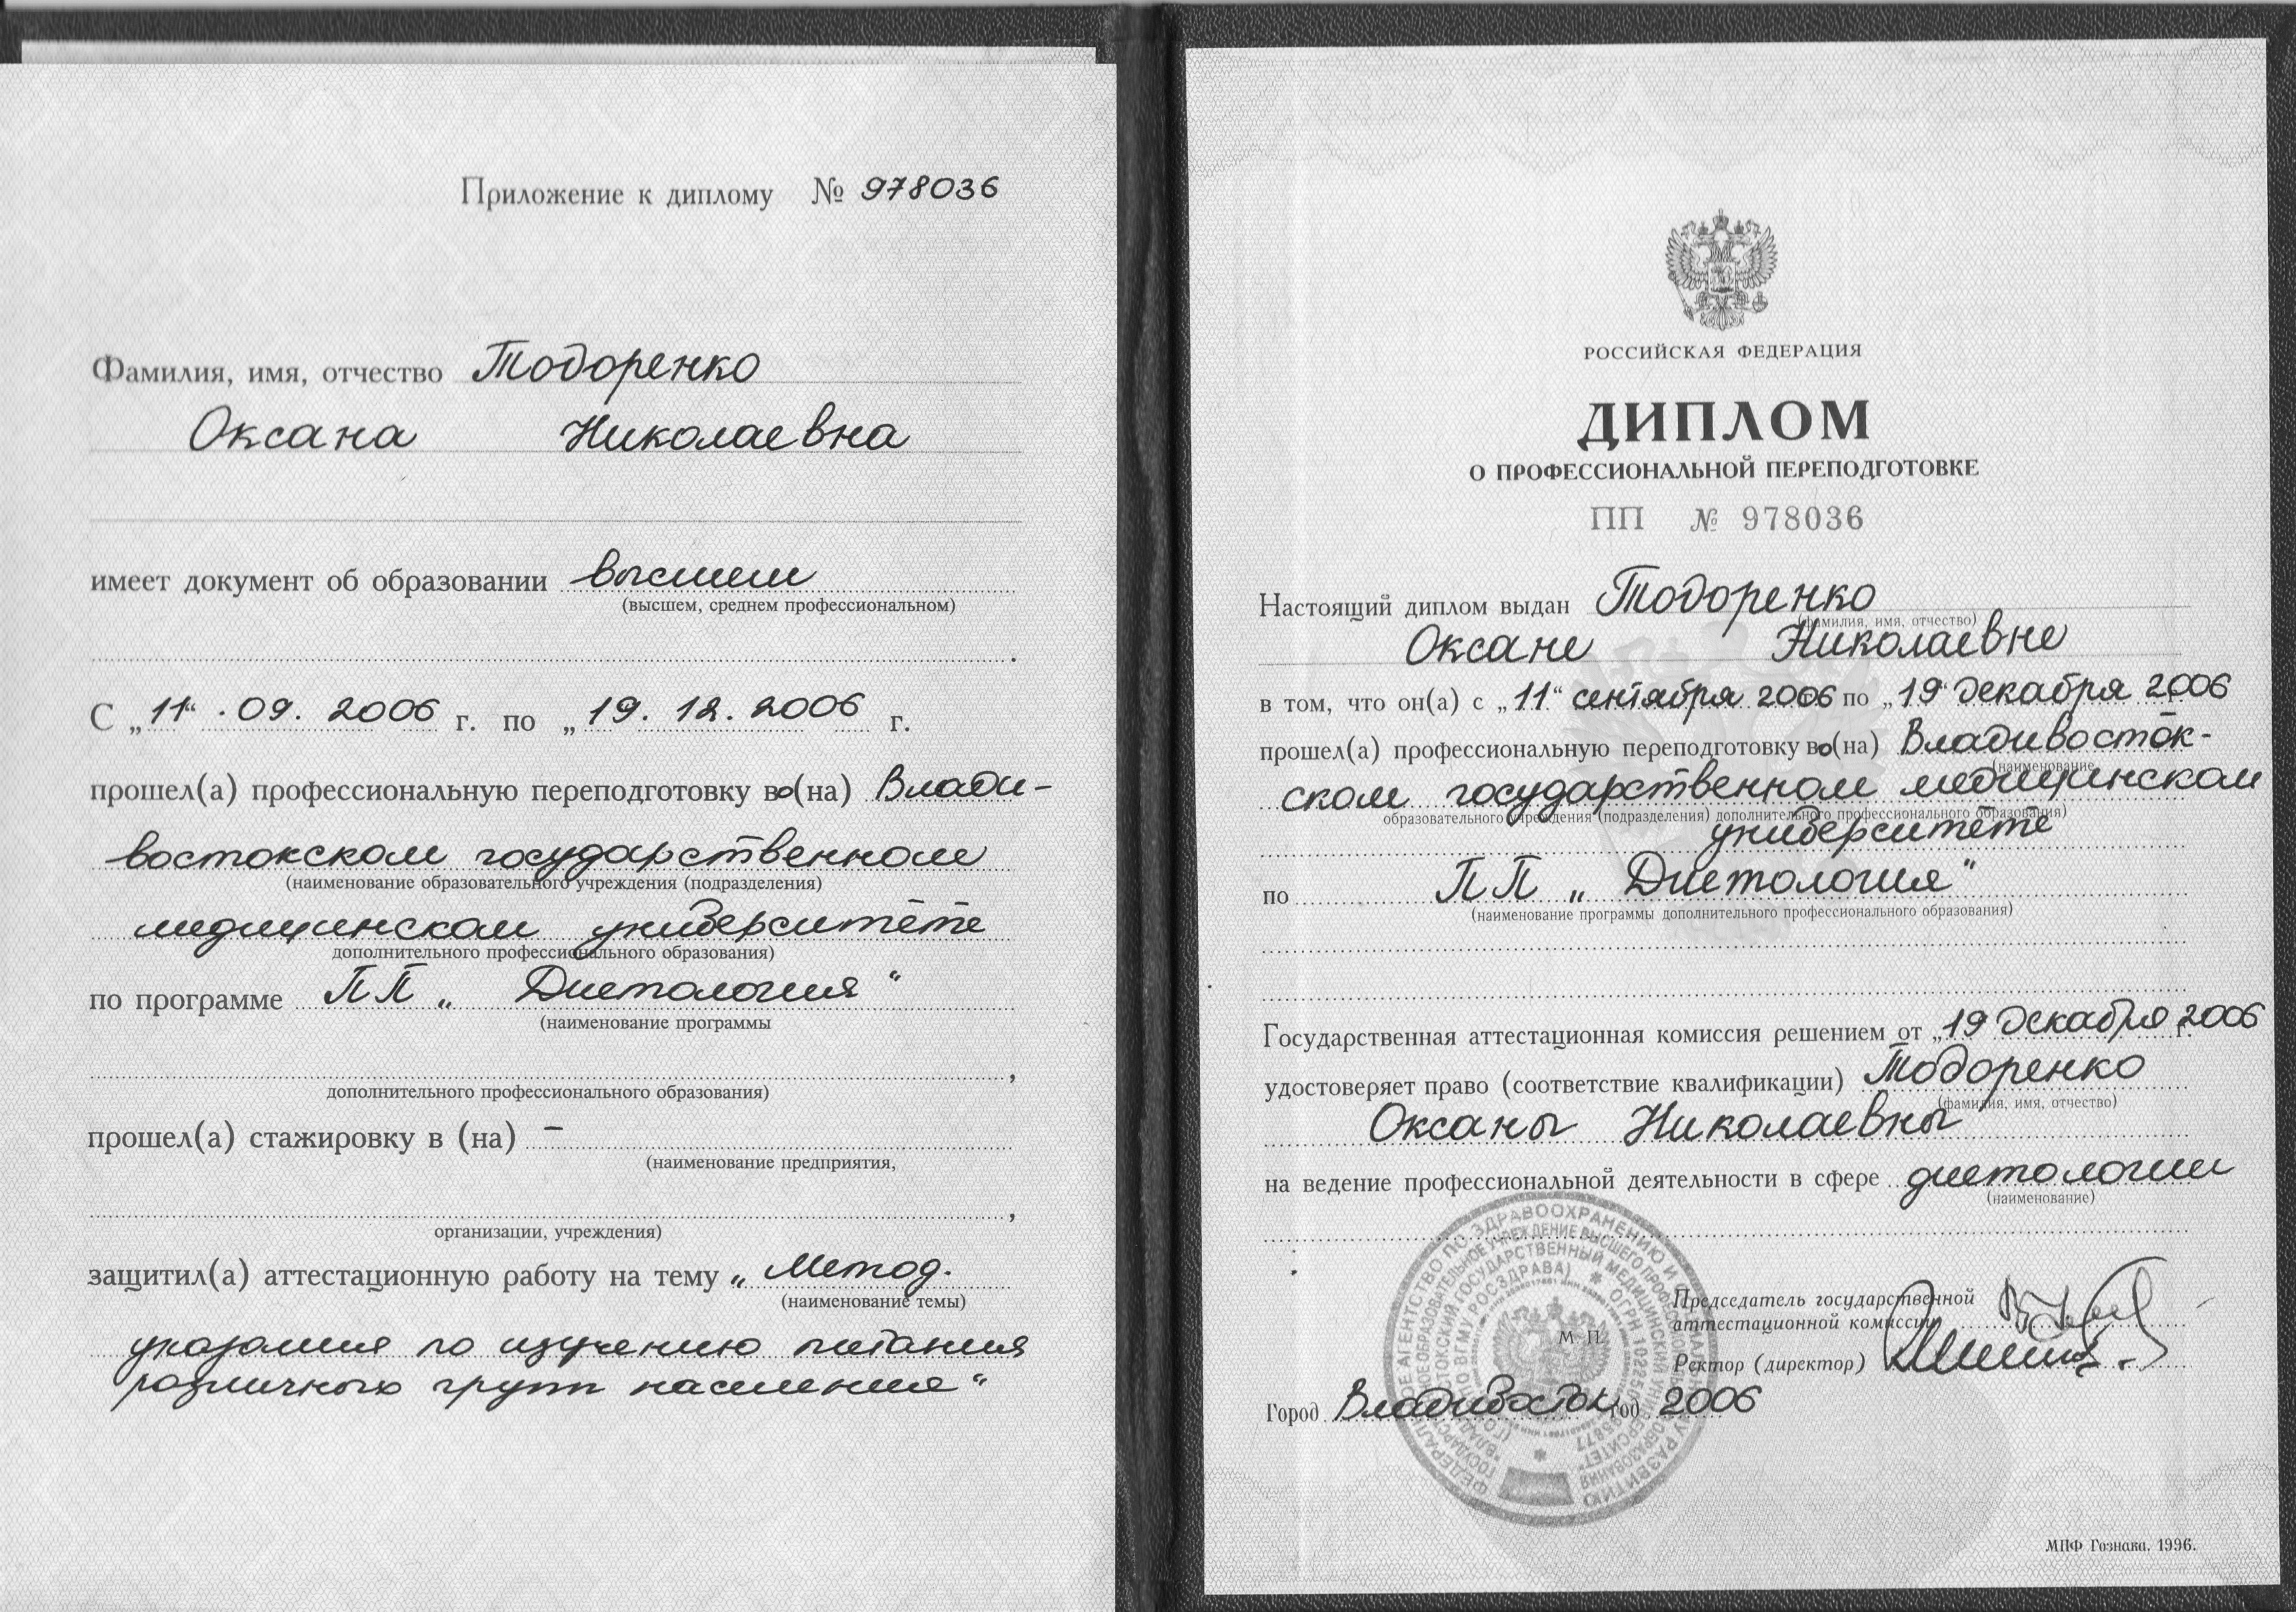 Приложение к диплому № 978036
Фамилия, имя, отчество Тодоренко
Оксана Николаевна
имеет документ об образовании высшем
(высшем, среднем профессиональном)
С „11“ . 09. 2006 г. по „19. 12. 2006 г.
прошел(а) профессиональную переподготовку во(на) Влади-
востокском государственном
(наименование образовательного учреждения (подразделения)
медицинском университете
дополнительного профессионального образования)
по программе ПП „ Диетология “
(наименование программы
дополнительного профессионального образования)
прошел(а) стажировку в (на) –
(наименование предприятия,
организации, учреждения)
защитил(а) аттестационную работу на тему „ Метод.
(наименование темы)
указания по изучению питания
различных групп населения “
РОССИЙСКАЯ ФЕДЕРАЦИЯ
ДИПЛОМ
О ПРОФЕССИОНАЛЬНОЙ ПЕРЕПОДГОТОВКЕ
ПП № 978036
Настоящий диплом выдан Тодоренко
(фамилия, имя, отчество)
Оксане Николаевне
в том, что он(а) с „11“ сентября 2006 по „19“ декабря 2006
прошел(а) профессиональную переподготовку во(на) Владивосток-
(наименование
ском государственном медицинском
образовательного учреждения (подразделения) дополнительного профессионального образования)
университете
по ПП „ Диетология “
(наименование программы дополнительного профессионального образования)
Государственная аттестационная комиссия решением от „19 декабря 2006 г.
удостоверяет право (соответствие квалификации) Тодоренко
(фамилия, имя, отчество)
Оксаны Николаевны
на ведение профессиональной деятельности в сфере диетологии
(наименование)
Председатель государственной
аттестационной комиссии
М. П.
Ректор (директор)
Город Владивосток год 2006
МПФ Гознака. 1996.